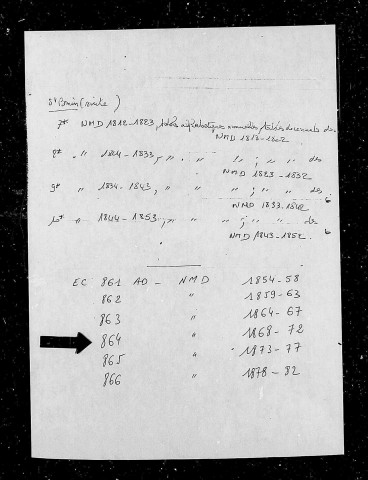 St Bonin (suite)
7* NMD 1812-1823, tables alphabétiques annuelles, tables décennales des
NMD 1813-1822
8* " 1824-1833, " " " ; " " des
NMD 1823-1832
9* " 1834-1843, " " " ; " " des
NMD 1833-1842
10* " 1844-1853, " " " ; " " des
NMD 1843-1852.
EC 861 AD - NMD 1854-58
862 " 1859-63
863 " 1864-67
864 " 1868-72
865 " 1873-77
866 " 1878-82